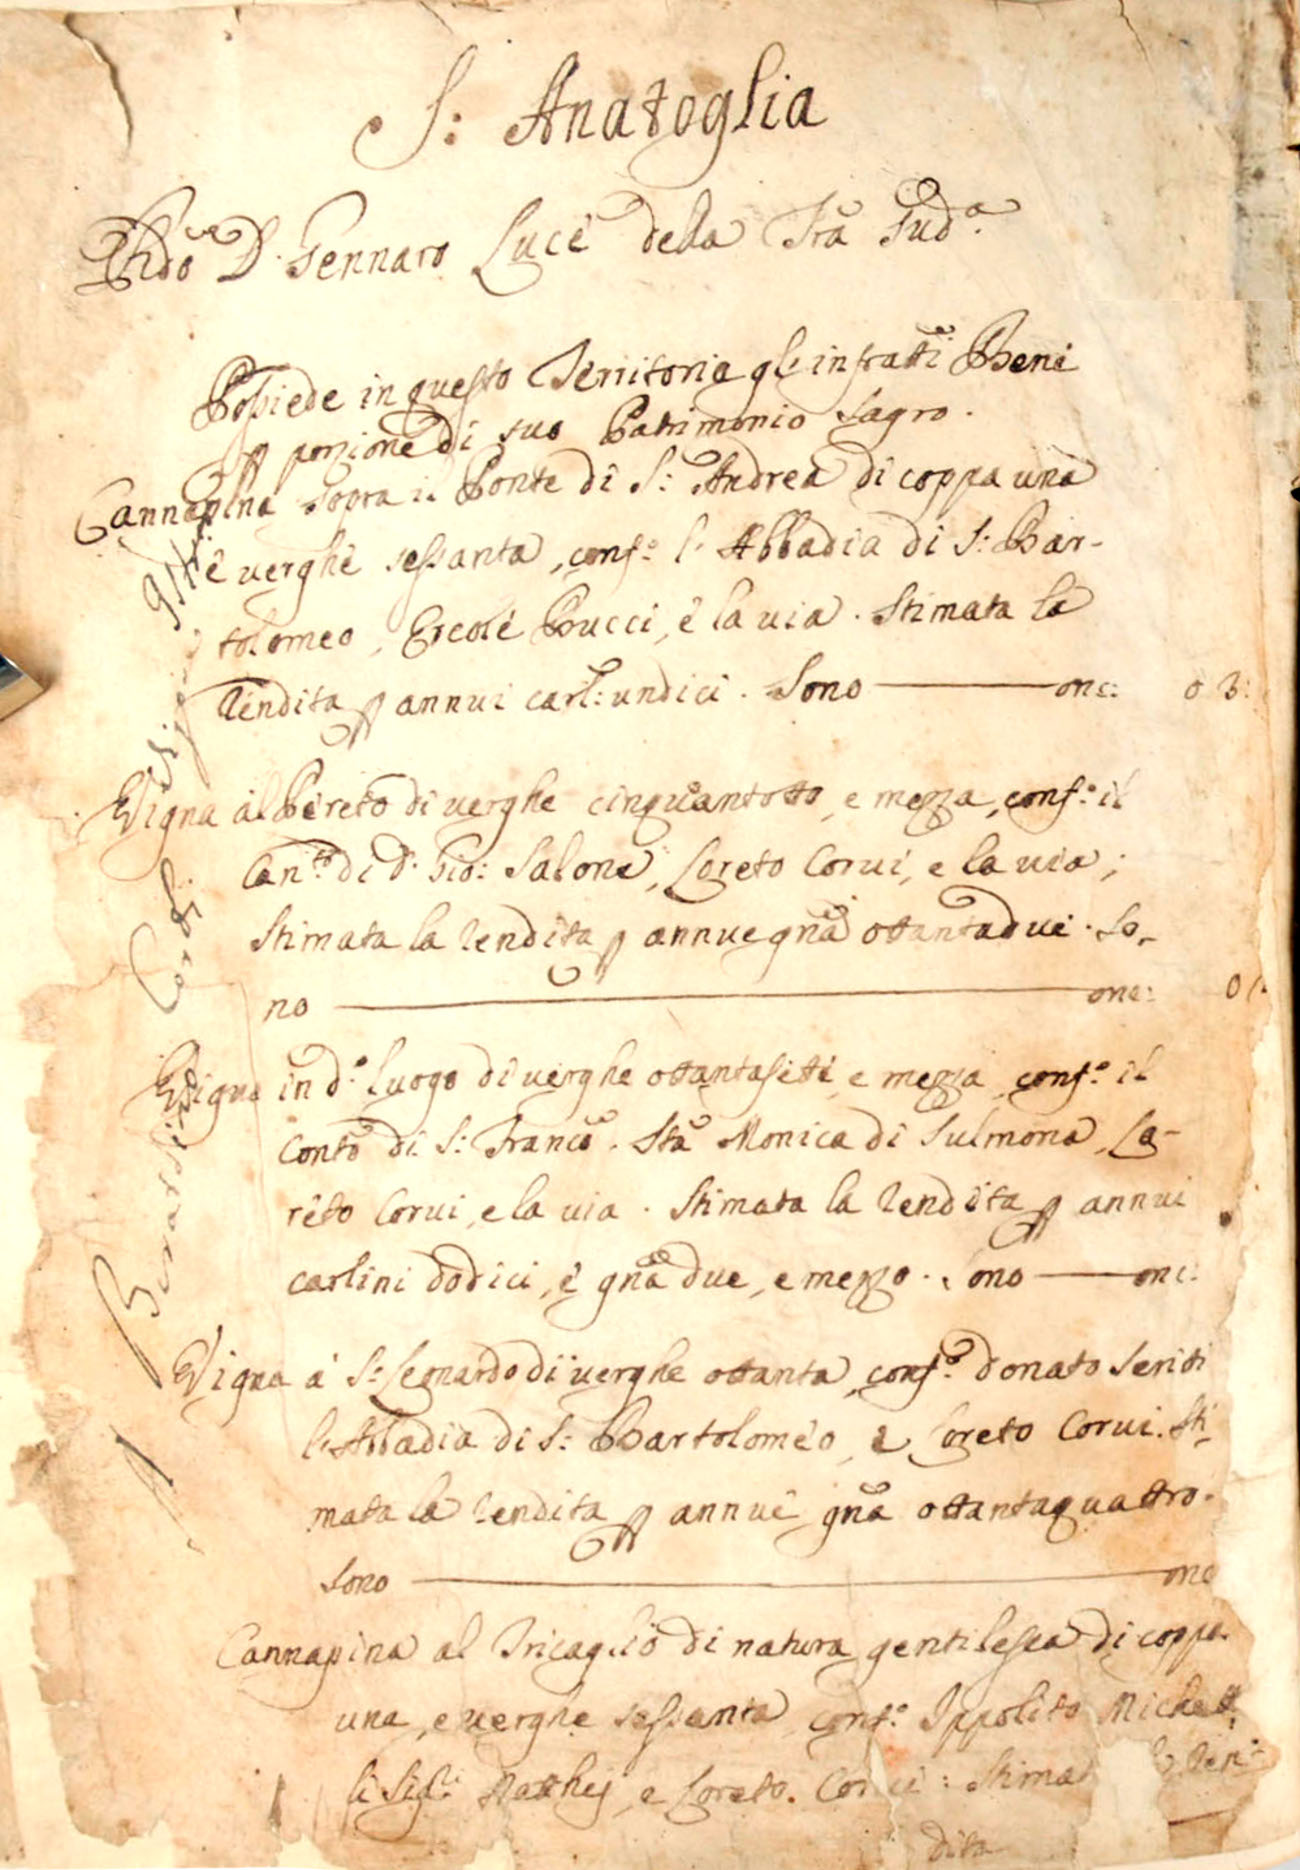 S: Anatoglia
D. Gennaro Luce della Tr̃a Sud.ª
Possiede in questo Territorio gl'infratti Beni
p porzione di suo Patrimonio Sagro.
Cannapina sopra il Ponte di S: Andrea di coppa una
e verghe sessanta, conf.º l'Abbadia di S: Bar-
tolomeo, Ercole Pucci, e la via. Stimata la
rendita p annui carl: undici. Sono — onc: 03:
Vigna al Pereto di verghe cinquantotto, e mezza, conf.º il
Can.to di D. Gio: Salone, Loreto Corvi, e la via;
Stimata la rendita p annue gñà ottantadue. So-
no — onc: 0
Vigna in d.º luogo di verghe ottantasette e mezza, conf.º il
Conto di S: Franco. Sta Monica di Sulmona, Lo-
reto Corvi, e la via. Stimata la rendita p annui
carlini dodici, e gñà due, e mezzo. Sono — onc:
Vigna à S: Leonardo di verghe ottanta, conf.º Donato
l'Abbadia di S: Bartolomeo, e Loreto Corvi. Sti-
mata la rendita p annue gñà ottantaquattro.
Sono — onc
Cannapina al Tricaglio di natura gentilesca di coppa
una, e verghe sessanta, conf.º Ippolito
li Sig.ri Matthej, e Loreto Corvi: Stimat la ren-
dita